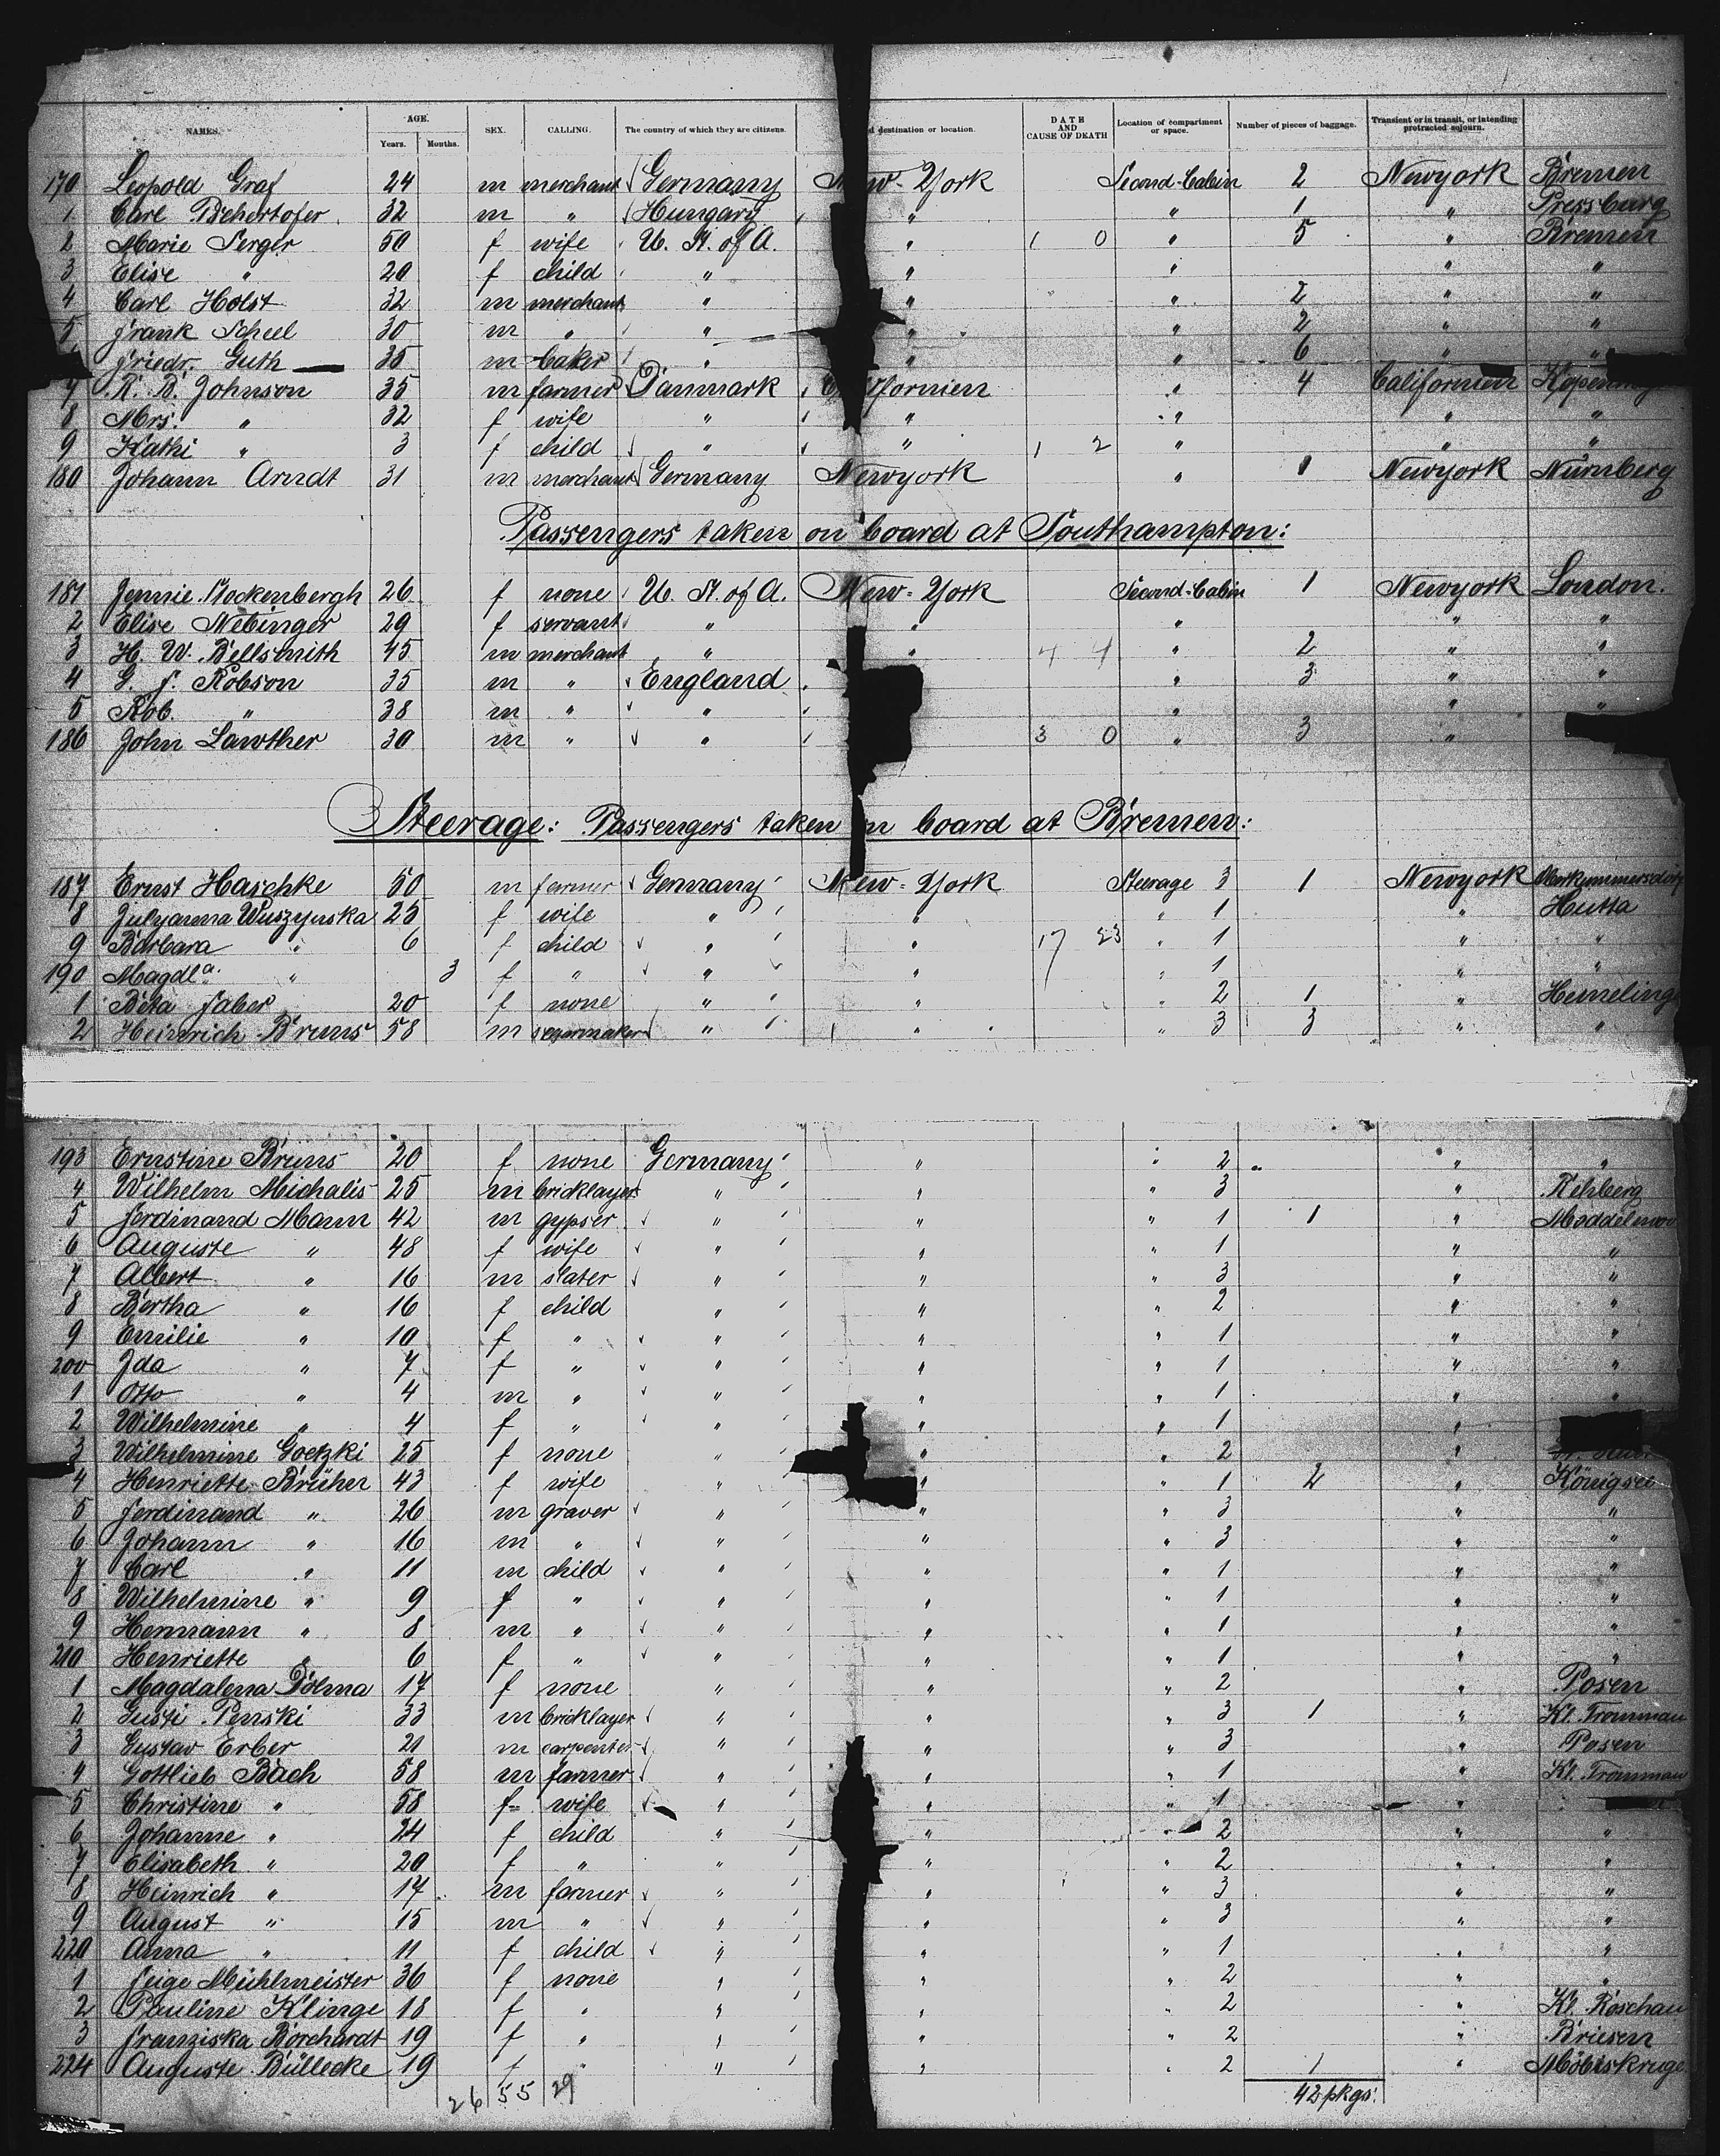 NAMES. AGE. Years. Months. SEX. CALLING. The country of which they are citizens. destination or location. DATE AND CAUSE OF DEATH Location of compartment or space. Number of pieces of baggage. Transient or in transit, or intending protracted sojourn.
170 Leopold Graf 24 m merchant Germany New-York Second-Cabin 2 Newyork Bremen
1 Carl 32 m " Hungary " " 1 " Pressburg
2 Marie Serger 50 f wife U. St. of A. " 1 0 " 5 " Bremen
3 Elise " 20 f child " " " " "
4 Carl Holst 32 m merchant " " " 2 " "
5 Frank Scheel 30 m " " " " 2 " "
Friedr. Guth 35 m baker " " " 6 " "
7 R. B. Johnson 35 m farmer Danmark Californien " 4 Californien
8 Mrs. " 32 f wife " " " " "
9 Kathi " 3 f child " " 1 2 " " "
180 Johann Arndt 31 m merchant Germany Newyork " 1 Newyork Nürnberg
Passengers taken on board at Southampton:
181 Jennie Stockenbergh 26 f none U. St. of A. New-York Second-Cabin 1 Newyork London.
2 Elise Nebinger 29 f servant " " " " "
3 H. W. Bellsmith 45 m merchant " " 4 4 " 2 " "
4 G. F. Robson 35 m " England " 3 " "
5 Rob. " 38 m " " " " "
186 John Lawther 30 m " " 3 0 " 3 "
Steerage: Passengers taken on board at Bremen:
187 Ernst Haschke 50 m farmer Germany New-York Steerage 3 1 Newyork
8 Julyanna Wuszynska 25 f wife " " " 1 " Hutta
9 Barbara " 6 f child " " 17 23 " 1 " "
190 Magdla. " 3 f " " " " 1 " "
1 Beta Faber 20 f none " " " 2 1 " Hemeling
2 Heinrich Bruns 58 m segarmaker " " " 3 3 " "
193 Ernstine Bruns 20 f none Germany " " 2 " " "
4 Wilhelm Michalis 25 m bricklayer " " " 3 " Rehberg
5 Ferdinand Mann 42 m gypser " " " 1 1 "
6 Auguste " 48 f wife " " " 1 " "
7 Albert " 16 m slater " " " 3 " "
8 Bertha " 16 f child " " " 2 " "
9 Emilie " 10 f " " " " 1 " "
200 Ida " 7 f " " " " 1 " "
1 Otto " 4 m " " " " 1 " "
2 Wilhelmine " 4 f " " " " 1 "
3 Wilhelmine Goetzki 25 f none " " " 2 "
4 Henriette Brüher 43 f wife " " " 1 2 " Königsee
5 Ferdinand " 26 m graver " " " 3 " "
6 Johann " 16 m " " " " 3 " "
7 Carl " 11 m child " " " 1 " "
8 Wilhelmine " 9 f " " " " 1 " "
9 Hermann " 8 m " " " " 1 " "
210 Henriette " 6 f " " " " 1 " "
1 Magdalena Dolma 17 f none " " " 2 " Posen
2 Gusti Penski 33 m bricklayer " " " 3 1 " Kl. Tromnau
3 Gustav Erber 21 m carpenter " " " 3 " Posen
4 Gottlieb Bach 58 m farmer " " " 1 " Kl. Tromnau
5 Christine " 58 f wife " " " 1 "
6 Johanne " 24 f child " " " 2 " "
7 Elisabeth " 20 f " " " " 2 " "
8 Heinrich " 17 m farmer " " " 3 " "
9 August " 15 m " " " " 3 " "
220 Anna " 11 f child " " " 1 " "
1 Feige Mühlmeister 36 f none " " " 2 " "
2 Pauline Klinge 18 f " " " " 2 " Kl. Roschau
3 Franziska Borchardt 19 f " " " " 2 " Briesen
224 Auguste Büllecke 19 f " " " " 2 1 "
26 55 29 42 pkgs.